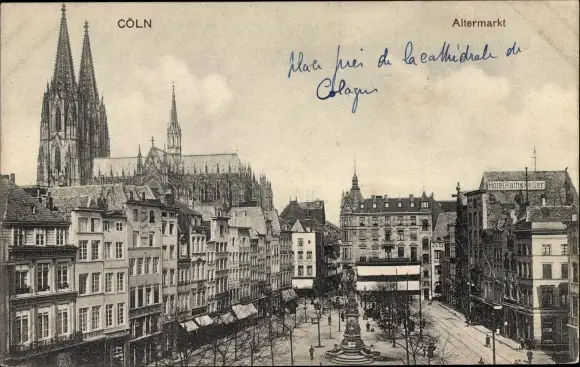 CÖLN
Altermarkt
place près de la cathédrale de
Cologne
Hotel Rathskeller